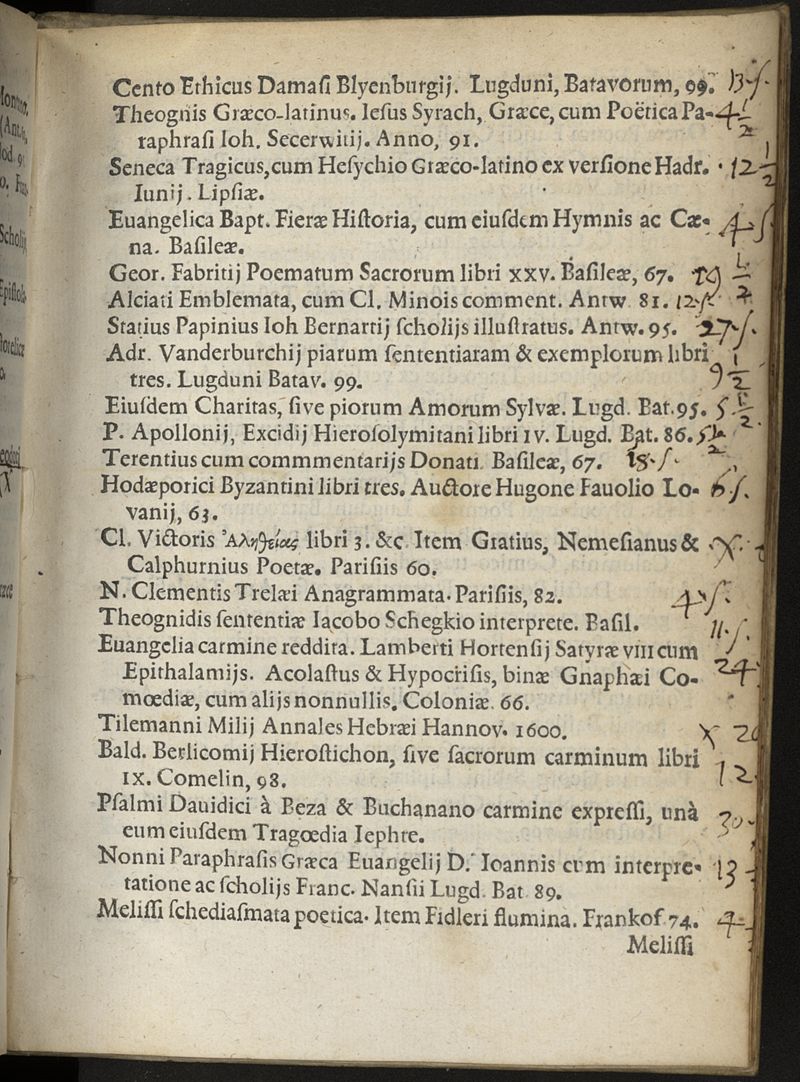 Cento Ethicus Damaſi Blyenburgij. Lugduni, Batavorum, 99. 13-ſ-
Theognis Græco-latinus. Ieſus Syrach, Græce, cum Poëtica Pa-
raphraſi Ioh. Secerwitij. Anno, 91.
Seneca Tragicus, cum Heſychio Græco-latino ex verſione Hadr.
Iunij. Lipſiæ.
Euangelica Bapt. Fieræ Hiſtoria, cum eiuſdem Hymnis ac Cæ-
na. Baſileæ.
Geor. Fabritij Poematum Sacrorum libri xxv. Baſileæ, 67.
Alciati Emblemata, cum Cl. Minois comment. Antw 81.
Statius Papinius Ioh Bernartij ſcholijs illuſtratus. Antw. 95. 27-ſ.
Adr. Vanderburchij piarum ſententiaram & exemplorum libri
tres. Lugduni Batav. 99.
Eiuſdem Charitas, ſive piorum Amorum Sylvæ. Lugd. Bat. 95.
P. Apollonij, Excidij Hieroſolymitani libri ıv. Lugd. Bat. 86.
Terentius cum commmentarijs Donati. Baſileæ, 67. 18-ſ-
Hodæporici Byzantini libri tres. Auctore Hugone Fauolio Lo-
vanij, 63.
Cl. Victoris Ἀληθείας libri 3. &c Item Gratius, Nemeſianus &
Calphurnius Poetæ. Pariſiis 60.
N. Clementis Trelæi Anagrammata. Pariſiis, 82. 4-ſ-
Theognidis ſententiæ Iacobo Schegkio interprete. Baſil. 11-ſ
Euangelia carmine reddita. Lamberti Hortenſij Satyræ vııı cum
Epithalamijs. Acolaſtus & Hypocriſis, binæ Gnaphæi Co-
mœdiæ, cum alijs nonnullis. Coloniæ. 66.
Tilemanni Milij Annales Hebræi Hannov. 1600.
Bald. Berlicomij Hieroſtichon, ſive ſacrorum carminum libri
ıx. Comelin, 98.
Pſalmi Dauidici à Beza & Buchanano carmine expreſſi, unà
cum eiuſdem Tragœdia Iephte.
Nonni Paraphraſis Græca Euangelij D. Ioannis cum interpre-
tatione ac ſcholijs Franc. Nanſii Lugd. Bat 89.
Meliſſi ſchediaſmata poetica. Item Fidleri flumina. Frankof 74.
Meliſſi